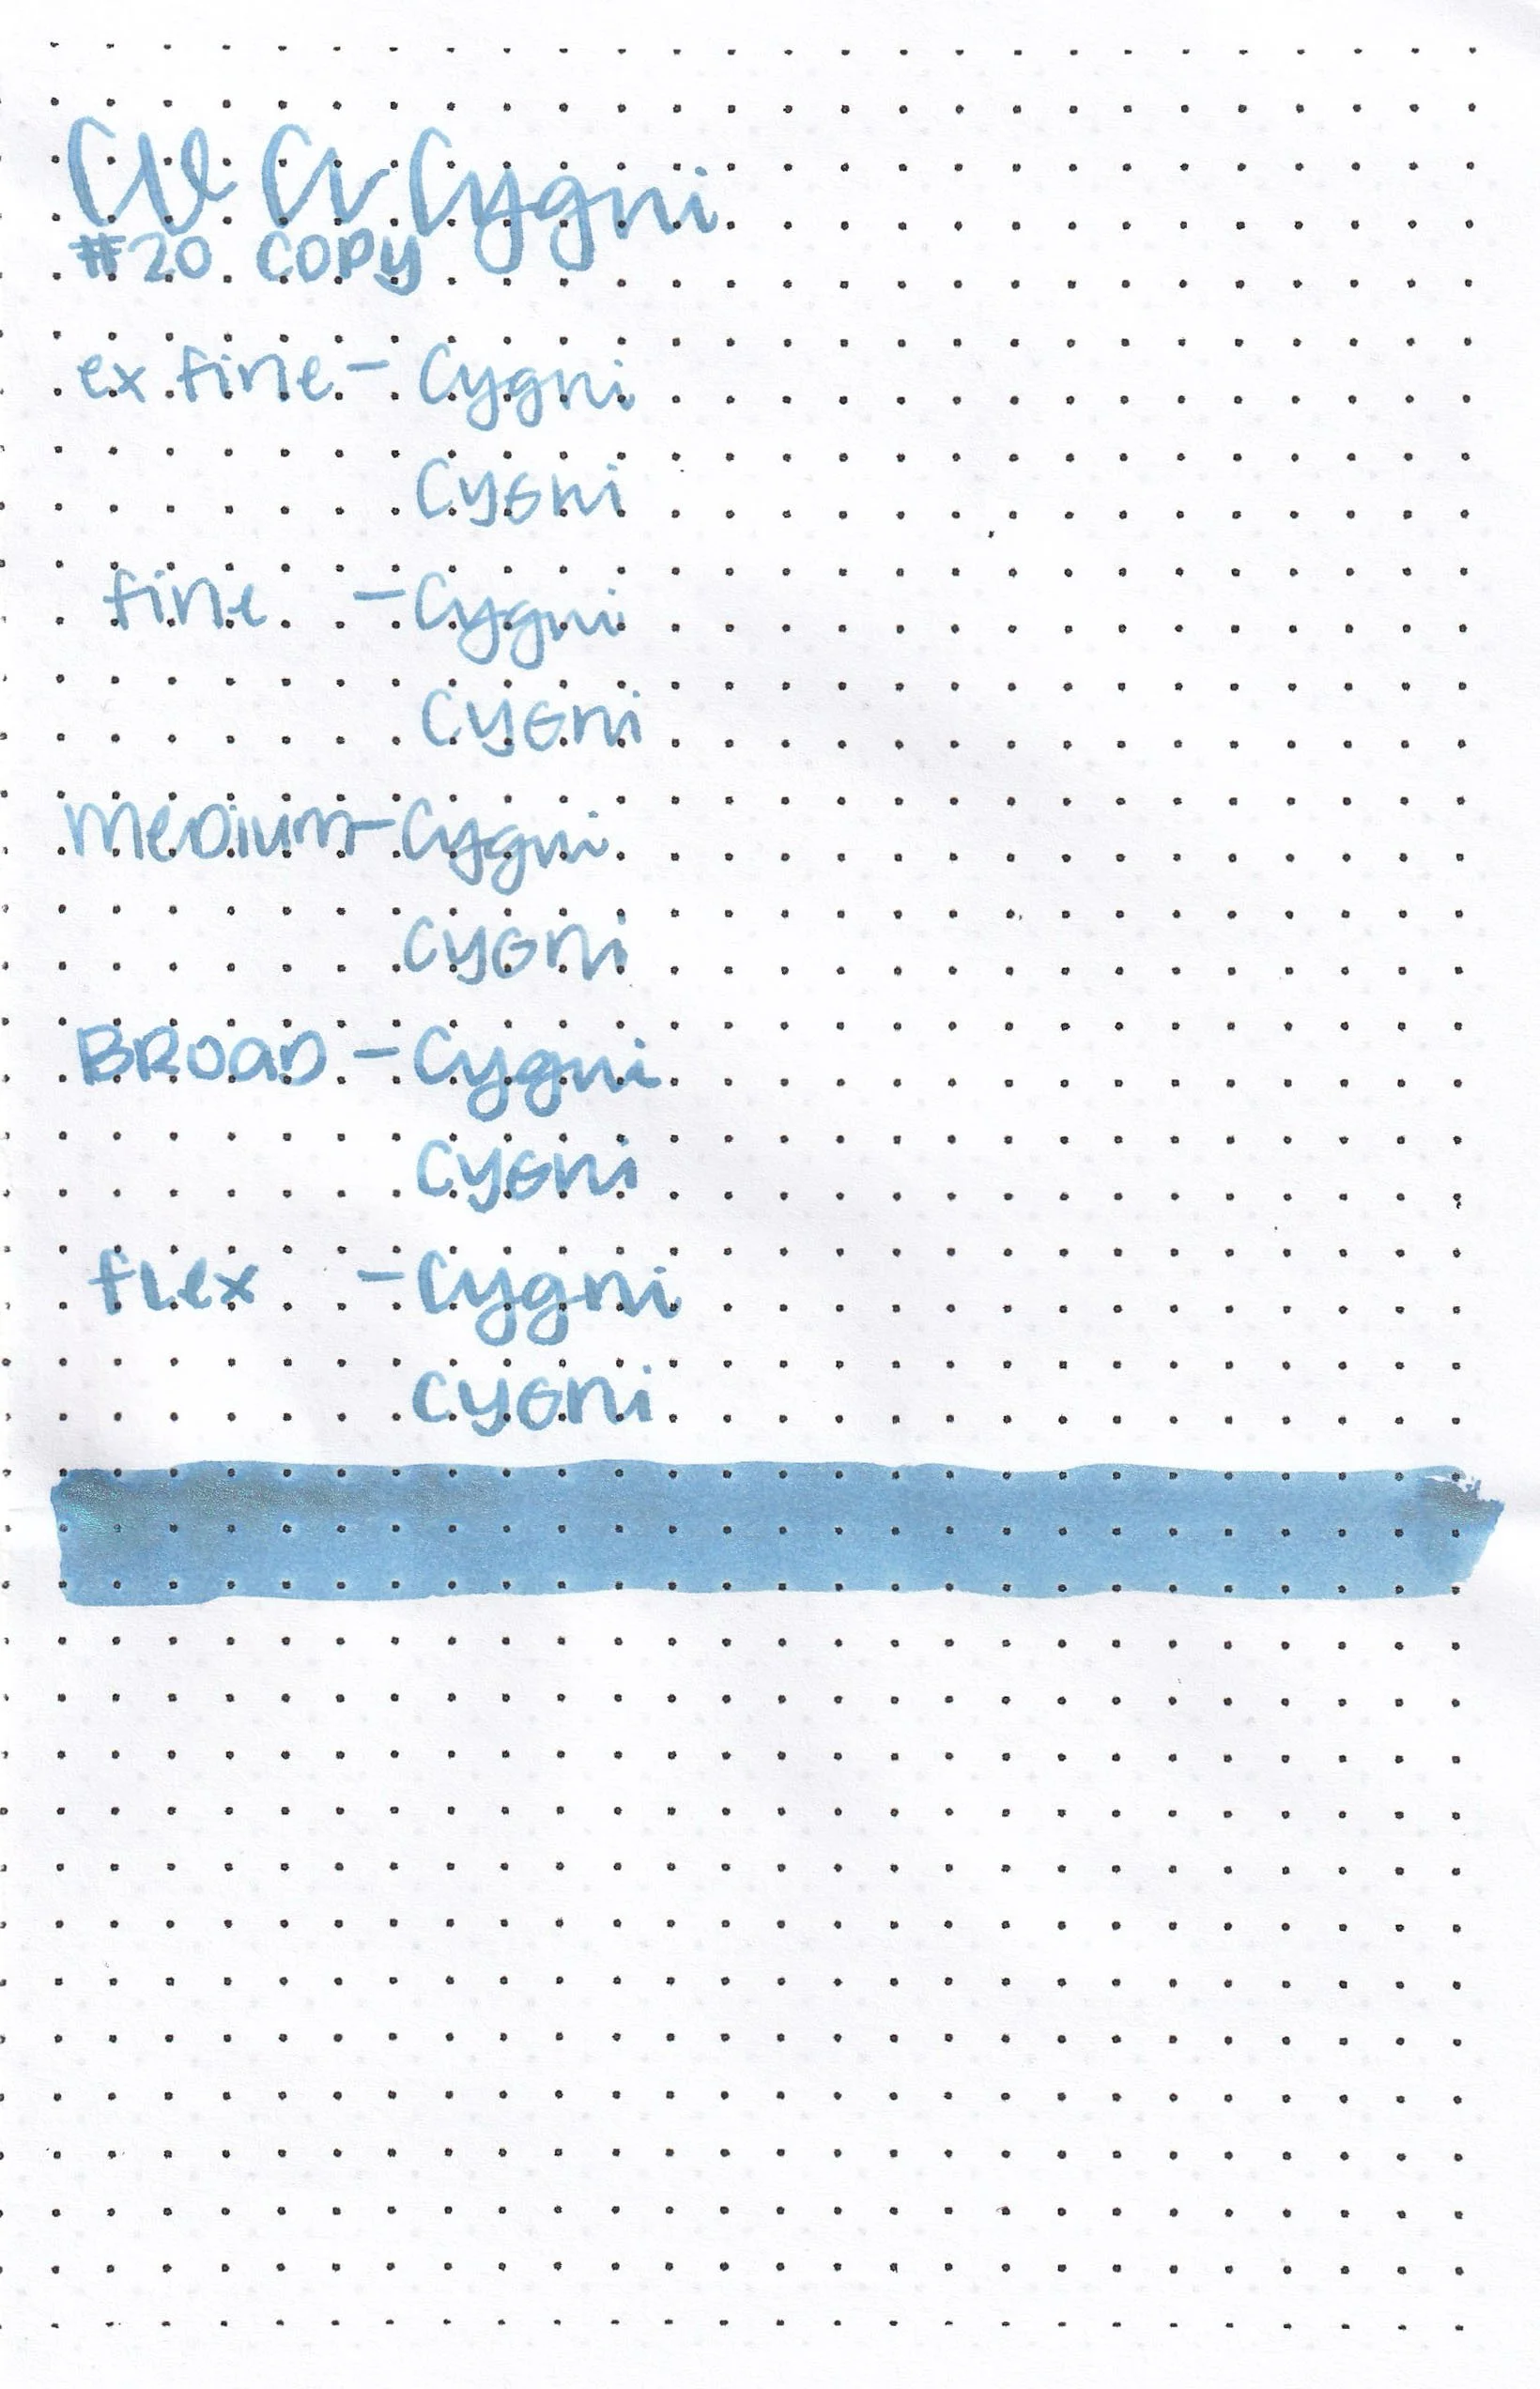 CVl Cr Cygni
#20 COPY
ex fine - Cygni
CyGni
fine - Cygni
CyGni
MeDium - Cygni
CyGni
BRoaD - Cygni
CyGni
fLex - Cygni
CyGni